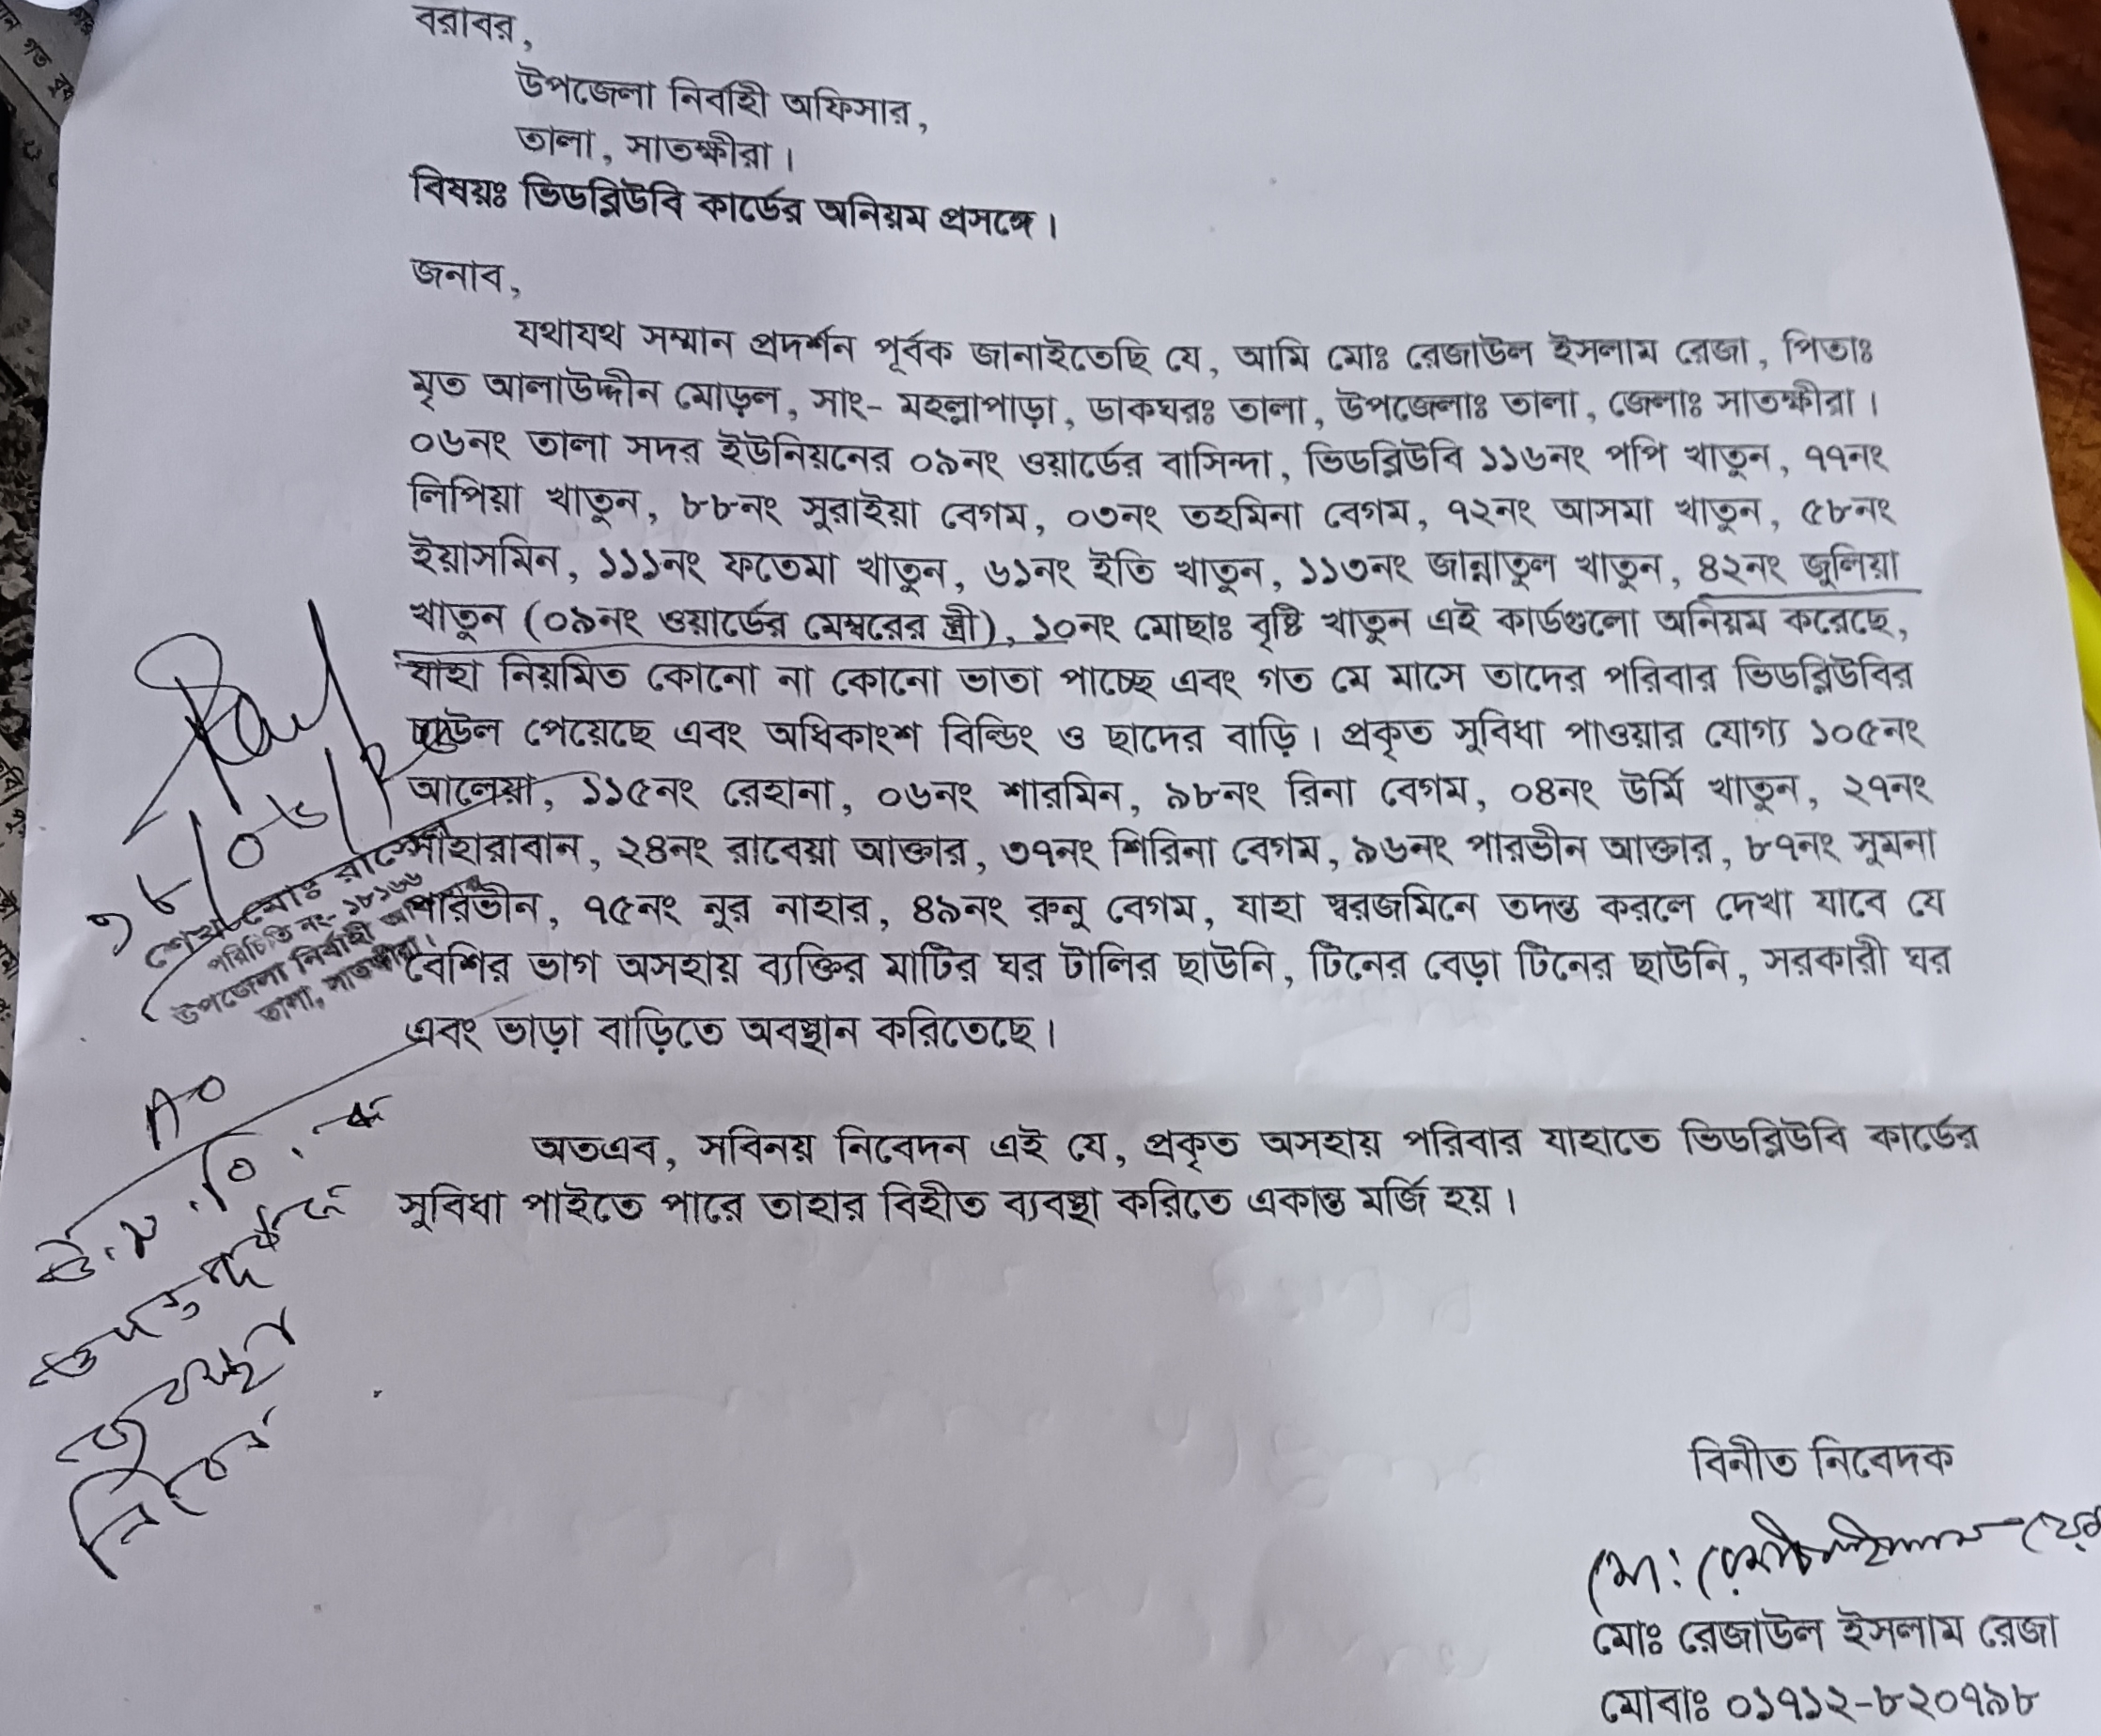 বরাবর,
উপজেলা নির্বাহী অফিসার,
তালা, সাতক্ষীরা।
বিষয়ঃ ভিডব্লিউবি কার্ডের অনিয়ম প্রসঙ্গে।
জনাব,
যথাযথ সম্মান প্রদর্শন পূর্বক জানাইতেছি যে, আমি মোঃ রেজাউল ইসলাম রেজা, পিতাঃ
মৃত আলাউদ্দীন মোড়ল, সাং- মহল্লাপাড়া, ডাকঘরঃ তালা, উপজেলাঃ তালা, জেলাঃ সাতক্ষীরা।
০৬নং তালা সদর ইউনিয়নের ০৯নং ওয়ার্ডের বাসিন্দা, ভিডব্লিউবি ১১৬নং পপি খাতুন, ৭৭নং
লিপিয়া খাতুন, ৮৮নং সুরাইয়া বেগম, ০৩নং তহমিনা বেগম, ৭২নং আসমা খাতুন, ৫৮নং
ইয়াসমিন, ১১১নং ফতেমা খাতুন, ৬১নং ইতি খাতুন, ১১৩নং জান্নাতুল খাতুন, ৪২নং জুলিয়া
খাতুন (০৯নং ওয়ার্ডের মেম্বরের স্ত্রী), ১০নং মোছাঃ বৃষ্টি খাতুন এই কার্ডগুলো অনিয়ম করেছে,
যাহা নিয়মিত কোনো না কোনো ভাতা পাচ্ছে এবং গত মে মাসে তাদের পরিবার ভিডব্লিউবির
চাউল পেয়েছে এবং অধিকাংশ বিল্ডিং ও ছাদের বাড়ি। প্রকৃত সুবিধা পাওয়ার যোগ্য ১০৫নং
আলেয়া, ১১৫নং রেহানা, ০৬নং শারমিন, ৯৮নং রিনা বেগম, ০৪নং উর্মি খাতুন, ২৭নং
সোহারাবান, ২৪নং রাবেয়া আক্তার, ৩৭নং শিরিনা বেগম, ৯৬নং পারভীন আক্তার, ৮৭নং সুমনা
পারভীন, ৭৫নং নুর নাহার, ৪৯নং রুনু বেগম, যাহা স্বরজমিনে তদন্ত করলে দেখা যাবে যে
বেশির ভাগ অসহায় ব্যক্তির মাটির ঘর টালির ছাউনি, টিনের বেড়া টিনের ছাউনি, সরকারী ঘর
এবং ভাড়া বাড়িতে অবস্থান করিতেছে।
শেখ মোঃ
পরিচিতি নং- ১৮১৬৬
উপজেলা নির্বাহী
তালা, সাতক্ষীরা।
অতএব, সবিনয় নিবেদন এই যে, প্রকৃত অসহায় পরিবার যাহাতে ভিডব্লিউবি কার্ডের
সুবিধা পাইতে পারে তাহার বিহীত ব্যবস্থা করিতে একান্ত মর্জি হয়।
ব্যবস্থা
বিনীত নিবেদক
মোঃ রেজাউল ইসলাম রেজা
মোবাঃ ০১৭১২-৮২০৭৯৮